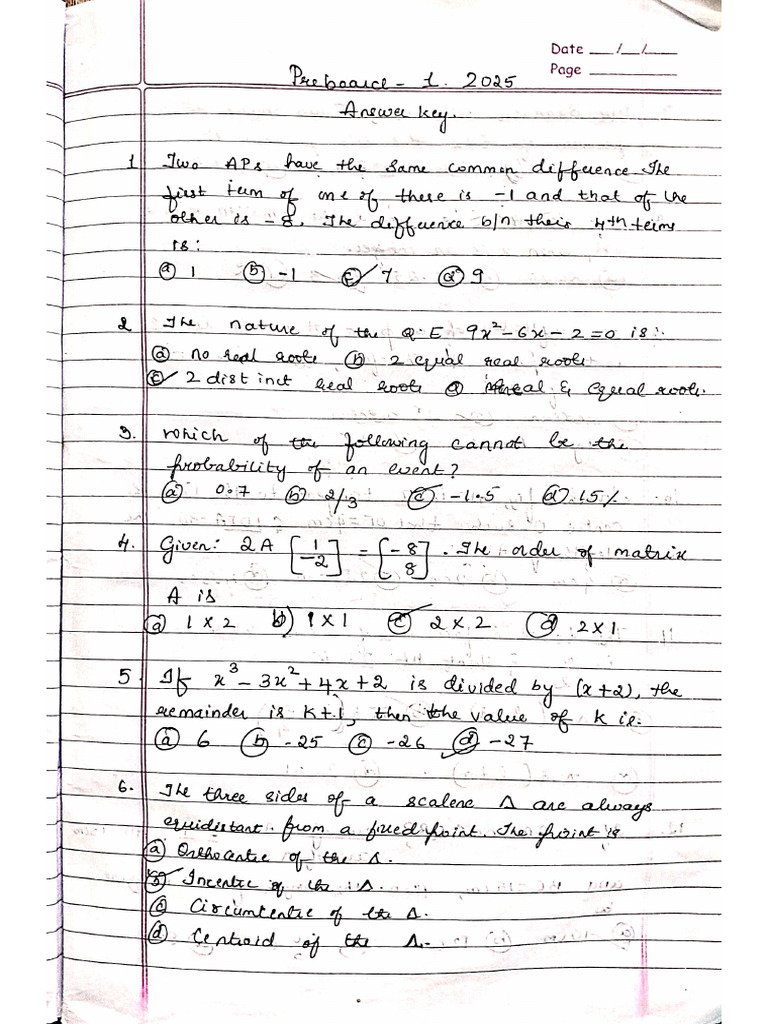 Date __/__/____
Page ________
Preboard - 1. 2025
Answer key.
1 Two APs have the same common difference The
first term of one of these is -1 and that of the
other is -8. The difference b/n their 4th terms
is:
ⓐ 1 ⓑ -1 ⓒ✓ 7 ⓓ 9
2 The nature of the Q.E 9x²-6x-2=0 is:
ⓐ no real roots ⓑ 2 equal real roots
ⓒ✓ 2 distinct real roots ⓓ real & equal roots.
3. which of the following cannot be the
probability of an event?
ⓐ 0.7 ⓑ 2/3 ⓒ✓ -1.5 ⓓ 15%
4. Given: 2A [1 -2] = [-8 8]. The order of matrix
A is
ⓐ 1 x 2 b) 1 x 1 ⓒ✓ 2 x 2 ⓓ 2 x 1
5 If x³-3x²+4x+2 is divided by (x+2), the
remainder is k+1, then the value of k is.
ⓐ 6 ⓑ -25 ⓒ -26 ⓓ✓ -27
6. The three sides of a scalene Δ are always
equidistant from a fixed point. The point is
ⓐ Orthocentre of the Δ.
ⓑ✓ Incentre of the Δ.
ⓒ Circumcentre of the Δ.
ⓓ Centroid of the Δ.